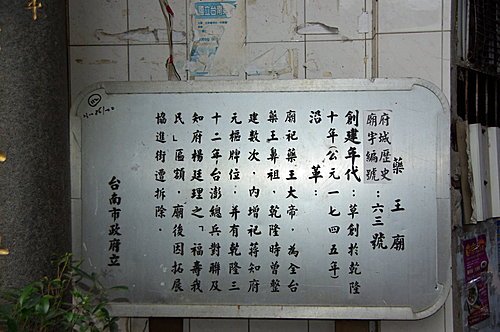 國立台灣
藥王廟
府城歷史
廟宇編號：六三號
創建年代：草創於乾隆
十年（公元一七四五年）
沿革：
廟祀藥王大帝，為全台
藥王鼻祖，乾隆時曾整
建數次，內增祀蔣知府
元樞牌位，并有乾隆三
十二年台澎總兵對聯及
知府楊廷理之「福壽我
民」匾額，廟後因拓展
協進街遭拆除．
台南市政府立